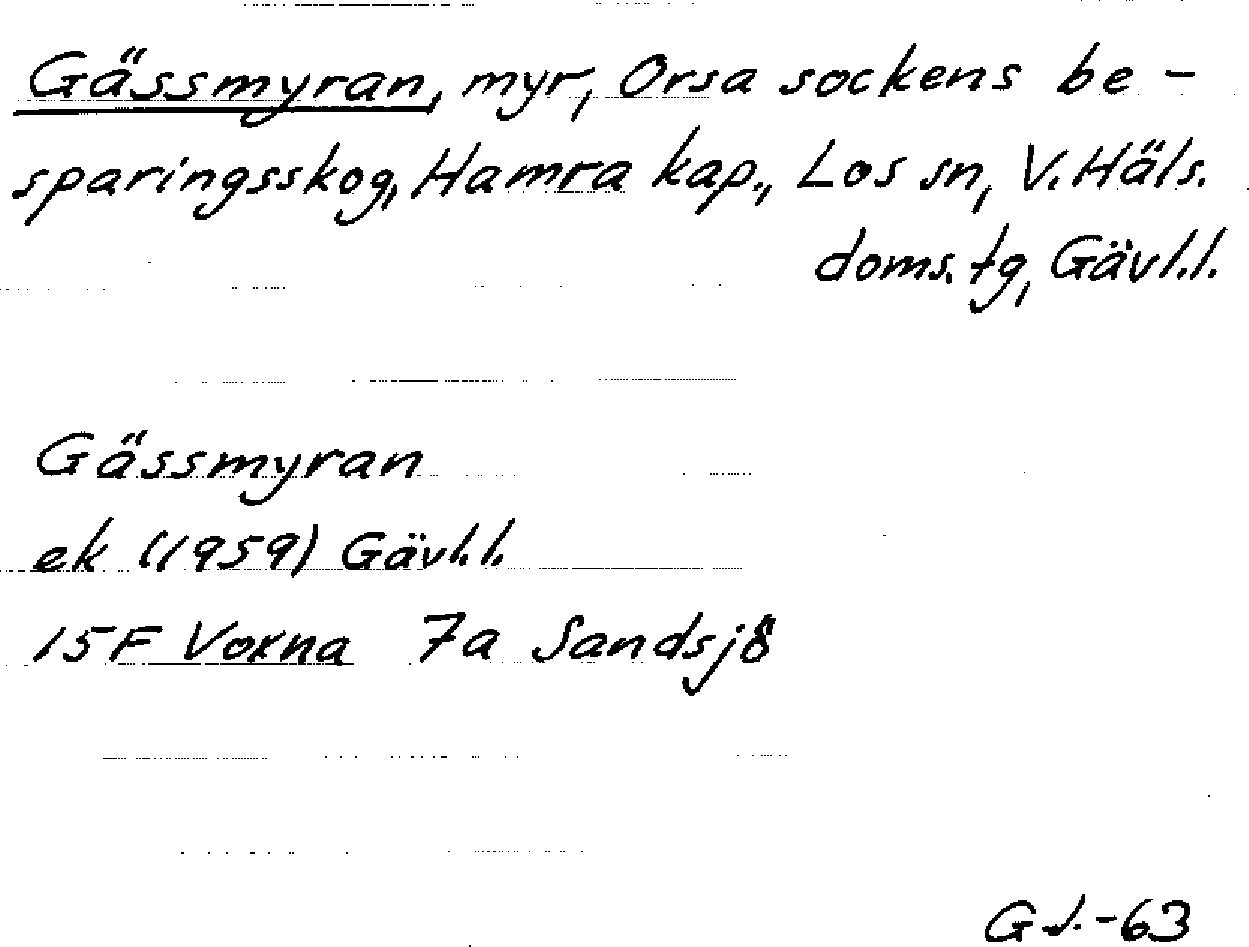 Gässmyran, myr, Orsa sockens be-
sparingsskog, Hamra kap., Los sn, V. Häls.
doms. tg, Gävl.l.
Gässmyran
ek (1959) Gävl.l.
15F Voxna 7a Sandsjö
G J.-63